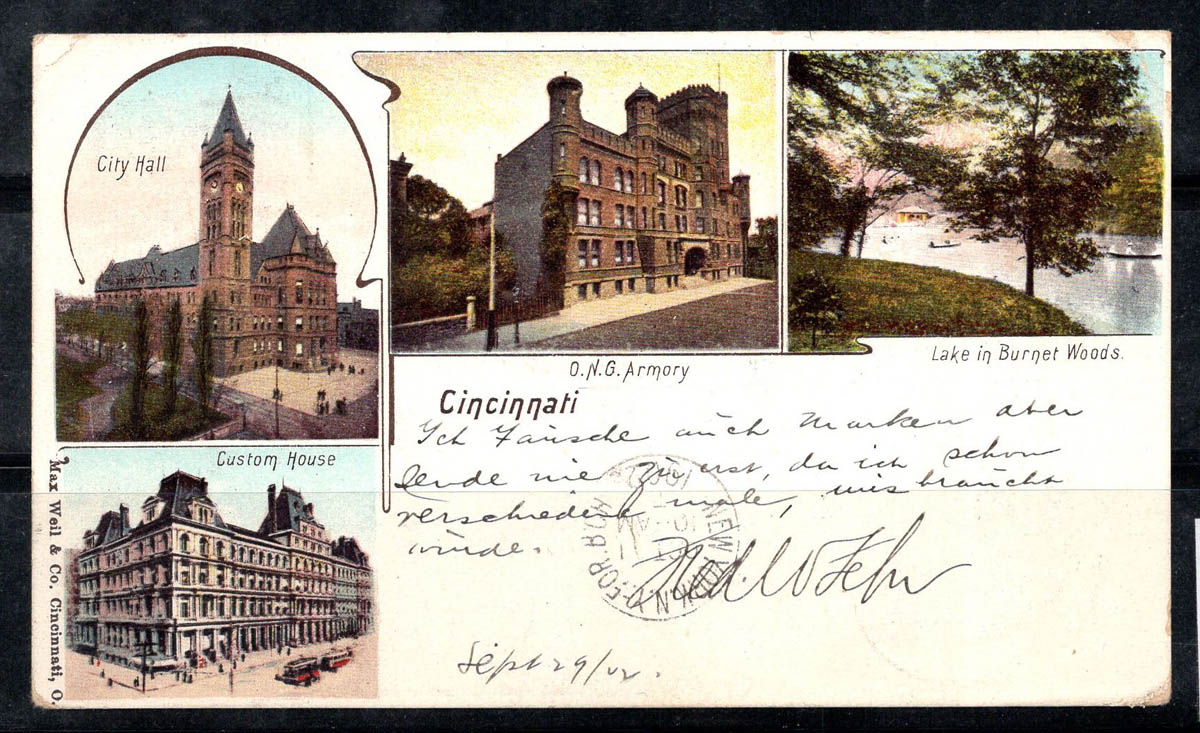 City Hall
O.N.G. Armory
Lake in Burnet Woods.
Cincinnati
Custom House
Max Weil & Co. Cincinnati, O.
Ich Tausche auch Marken aber
sende nie zu erst, da ich schon
verschiedene male, missbraucht
wurde.
Sept 29/02.
NEW YORK, N.Y.